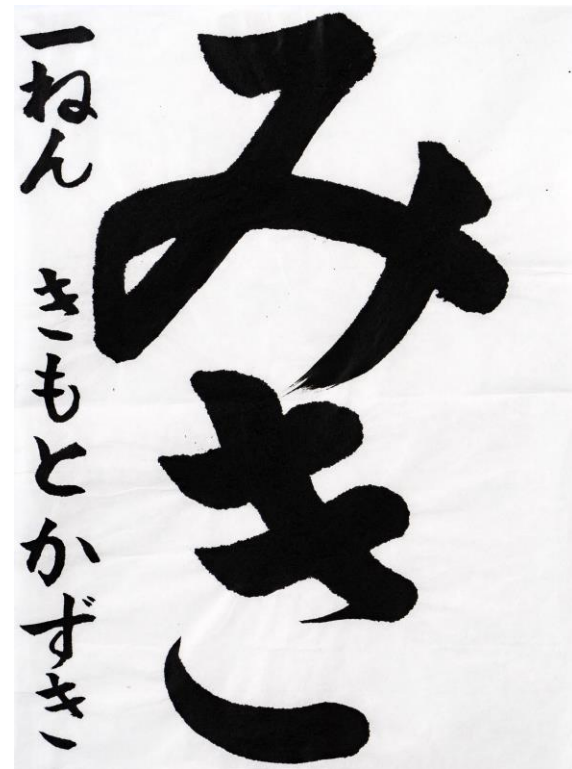 みき
一ねん きもとかずき